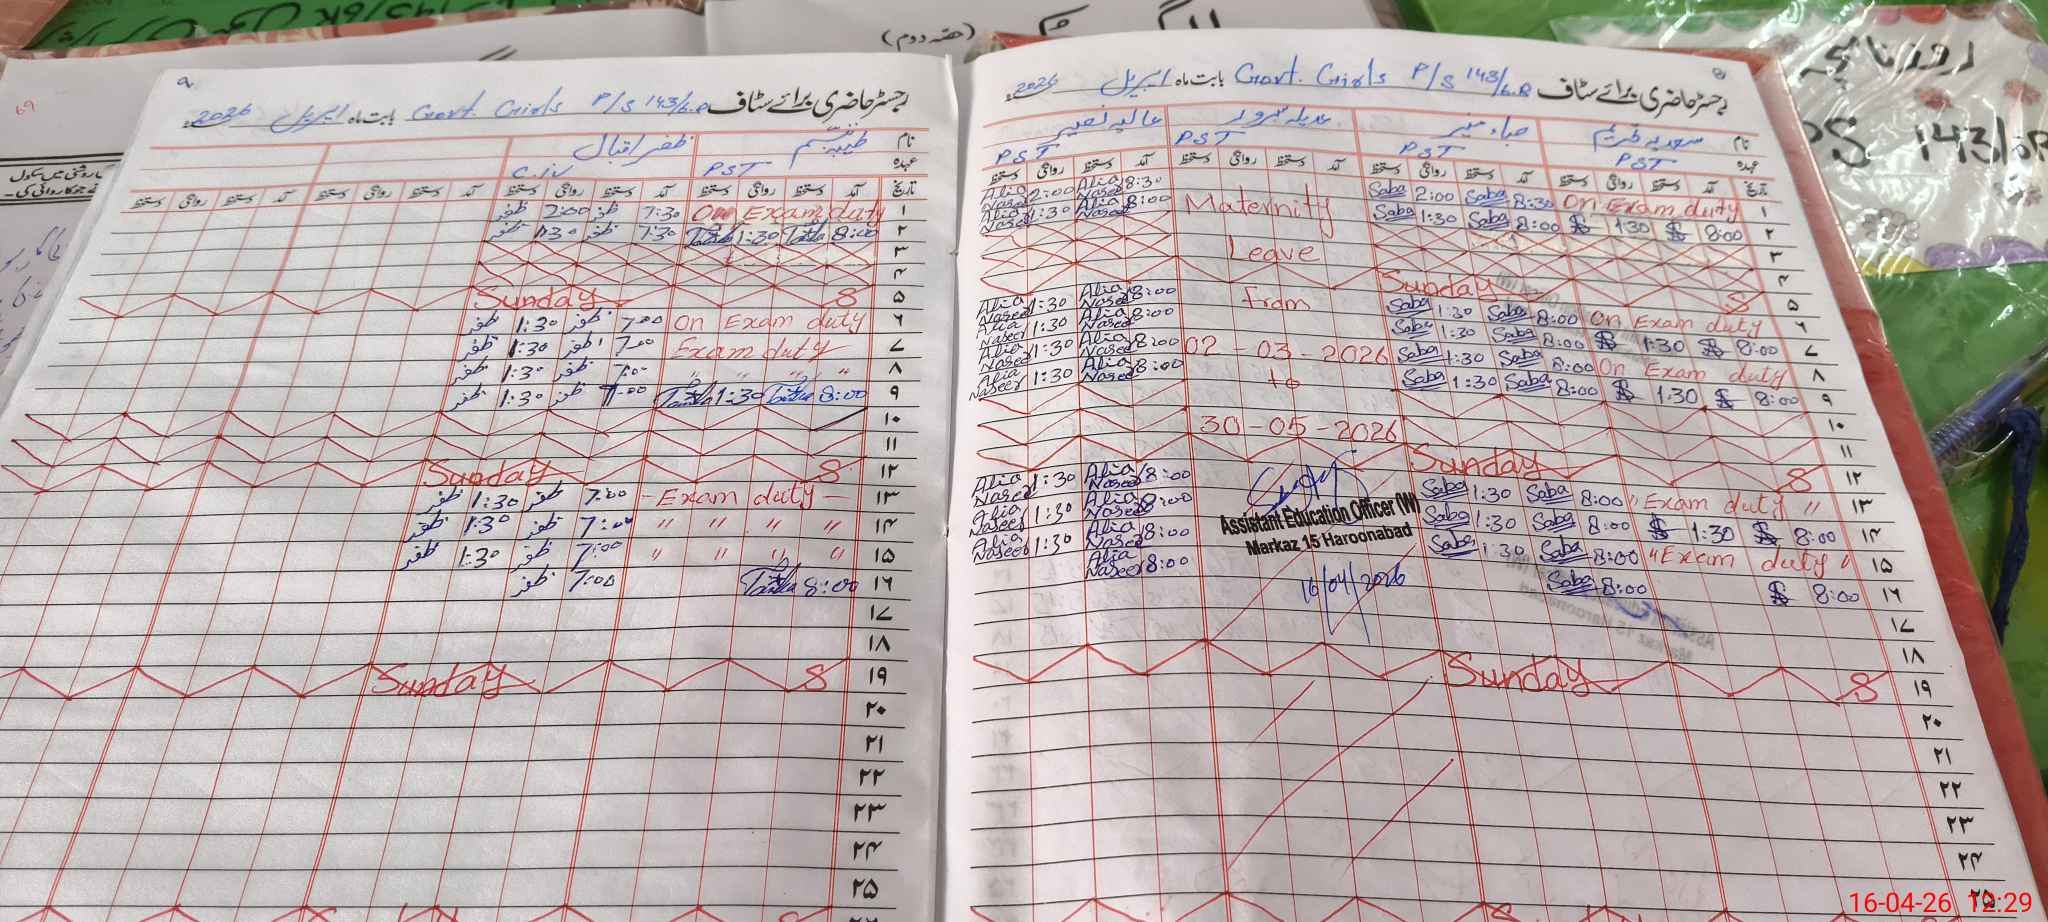 رجسٹر حاضری برائے سٹاف Govt. Girls P/S 143/6.R بابت ماہ اپریل 2026
نام سعدیہ مریم صباء منیر عدیلہ سرور عالیہ نصیر
عہدہ PST PST PST PST
تاریخ آمد دستخط روانگی دستخط آمد دستخط روانگی دستخط آمد دستخط روانگی دستخط آمد دستخط روانگی دستخط
۱ On Exam duty 8:30 Saba 2:00 Saba Maternity 8:30 Alia Naseer 2:00 Alia Naseer
۲ 8:00 1:30 8:00 Saba 1:30 Saba 8:00 Alia Naseer 1:30 Alia Naseer
۳ Leave
۴
۵ S Sunday from
۶ On Exam duty 8:00 Saba 1:30 Saba 8:00 Alia Naseer 1:30 Alia Naseer
۷ 8:00 1:30 8:00 Saba 1:30 Saba 02-03-2026 8:00 Alia Naseer 1:30 Alia Naseer
۸ On Exam duty 8:00 Saba 1:30 Saba to 8:00 Alia Naseer 1:30 Alia Naseer
۹ 8:00 1:30 8:00 Saba 1:30 Saba 8:00 Alia Naseer 1:30 Alia Naseer
۱۰ 30-05-2026
۱۱
۱۲ S Sunday
۱۳ " Exam duty " 8:00 Saba 1:30 Saba 8:00 Alia Naseer 1:30 Alia Naseer
Assistant Education Officer (W)
Markaz 15 Haroonabad
۱۴ 8:00 1:30 8:00 Saba 1:30 Saba 8:00 Alia Naseer 1:30 Alia Naseer
۱۵ " Exam duty " 8:00 Saba 1:30 Saba 8:00 Alia Naseer 1:30 Alia Naseer
۱۶ 8:00 8:00 Saba 16/04/2026 8:00 Alia Naseer
۱۷
۱۸
۱۹ S Sunday
۲۰
۲۱
۲۲
۲۳
۲۴
۲۵
رجسٹر حاضری برائے سٹاف Govt. Girls P/S 143/6.R بابت ماہ اپریل 2026
۹
نام طیبہ تبسم ظفر اقبال
عہدہ PST C.IV
تاریخ آمد دستخط روانگی دستخط آمد دستخط روانگی دستخط آمد دستخط روانگی دستخط آمد دستخط روانگی دستخط
۱ On Exam duty 7:30 ظفر 2:00 ظفر
۲ 8:00 1:30 7:30 ظفر 1:30 ظفر
۳
۴
۵ S Sunday
۶ On Exam duty 7:00 ظفر 1:30 ظفر
۷ Exam duty 7:00 ظفر 1:30 ظفر
۸ " " " " 7:00 ظفر 1:30 ظفر
۹ 8:00 1:30 7:00 ظفر 1:30 ظفر
۱۰
۱۱
۱۲ S Sunday
۱۳ - Exam duty - 7:00 ظفر 1:30 ظفر
۱۴ " " " " 7:00 ظفر 1:30 ظفر
۱۵ " " " " 7:00 ظفر 1:30 ظفر
۱۶ 8:00 7:00 ظفر
۱۷
۱۸
۱۹ S Sunday
۲۰
۲۱
۲۲
۲۳
۲۴
۲۵
(حصہ دوم)
143/6R
PS 143/6R
69
16-04-26 12:29